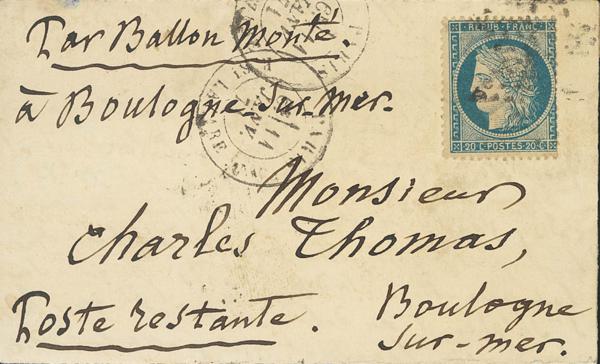 Par Ballon Monté.
à Boulogne-sur-Mer.
REPUB·FRANC·
20 C·POSTES·20·C
Monsieur
Charles Thomas,
Poste restante.
Boulogne
sur-mer.